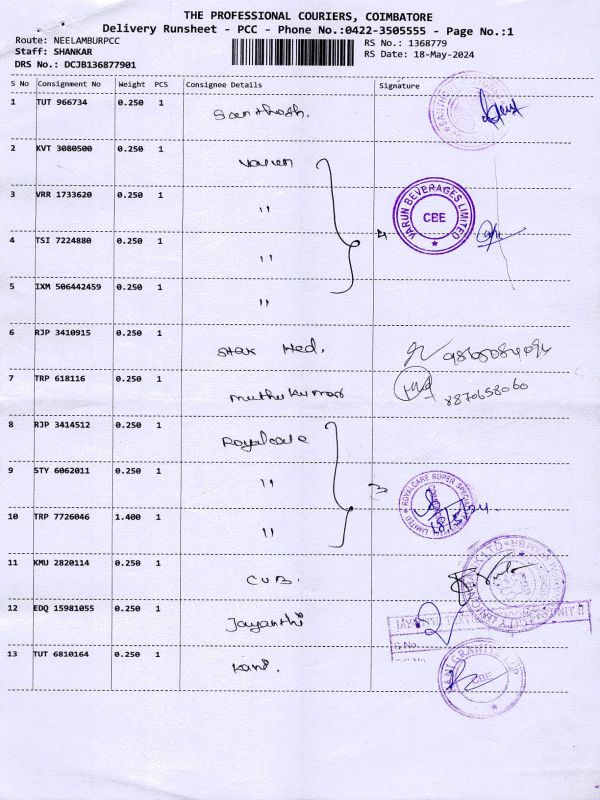 THE PROFESSIONAL COURIERS, COIMBATORE
Delivery Runsheet - PCC - Phone No.:0422-3505555 - Page No.:1
Route: NEELAMBURPCC RS No.: 1368779
Staff: SHANKAR RS Date: 18-May-2024
DRS No.: DCJB136877901
S No Consignment No Weight PCS Consignee Details Signature
1 TUT 966734 0.250 1 Santhosh.
2 KVT 3080500 0.250 1 Varun
3 VRR 1733620 0.250 1 "
VARUN BEVERAGES LIMITED
CBE
4 TSI 7224880 0.250 1 " 4
5 IXM 506442459 0.250 1 "
6 RJP 3410915 0.250 1 Star Hed.
7 TRP 618116 0.250 1 Muthukumar 8870658060
8 RJP 3414512 0.250 1 Royalcare
9 STY 6062011 0.250 1 " 3
ROYALCARE SUPER SPECIALITY LIMITED
10 TRP 7726046 1.400 1 "
11 KMU 2820114 0.250 1 CUB.
12 EDQ 15981055 0.250 1 Jayanthi
S.No.
13 TUT 6810164 0.250 1 Kani.
CBE